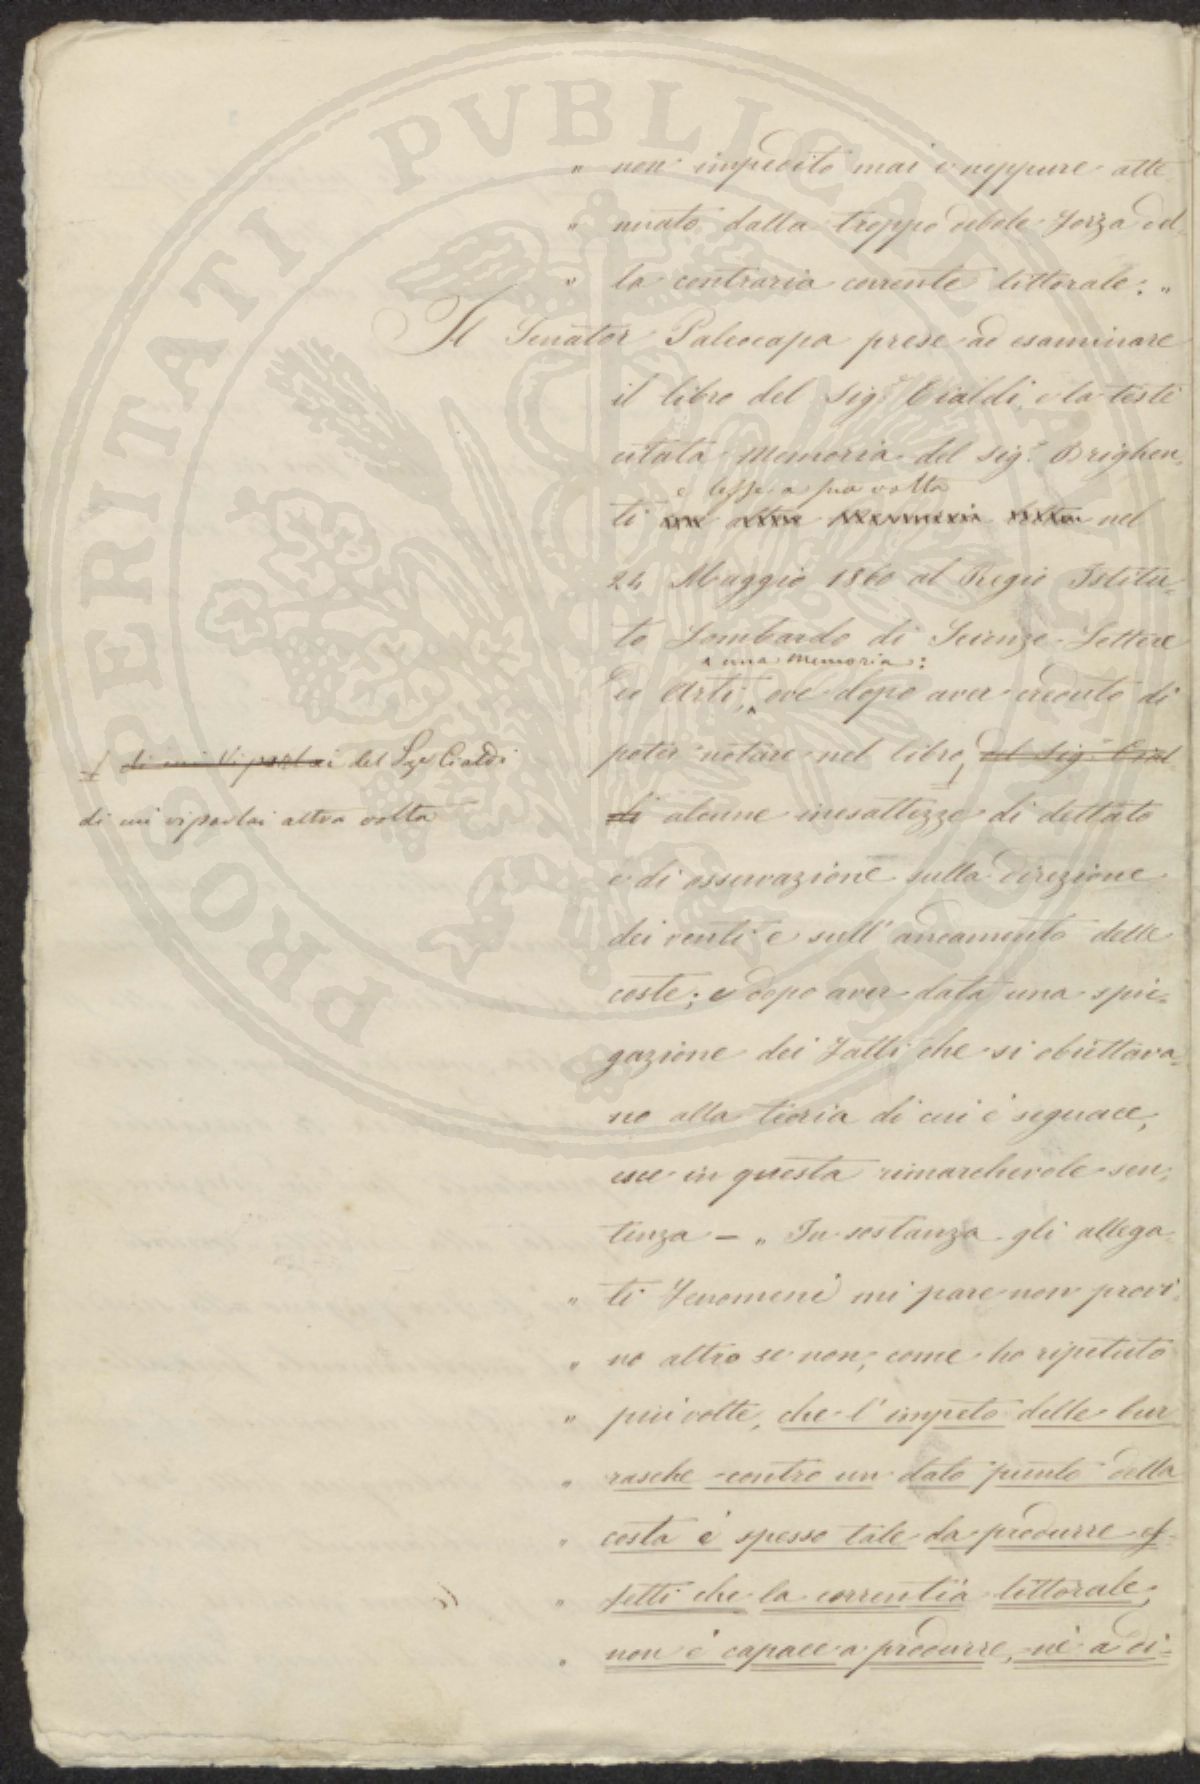 PROSPERITATI PUBLICAE AUGENDAE
„ non impedito mai e neppure atte
„ nuato dalla troppo debole forza del
„ la contraria corrente littorale: „
Il Senator Paleocapa prese ad esaminare
il libro del Sig.r Cialdi, e la testè
citata Memoria del Sig.r Brighen=
e lesse a sua volta
ti nel
24 Maggio 1860 al Regio Istitu=
to Lombardo di Scienze Lettere
una Memoria:
ed Arti, ove dopo aver creduto di
poter notare nel libro, del Sig. Cial
di alcune inesattezze di dettato
e di osservazione sulla direzione
dei venti e sull' andamento delle
coste; e dopo aver data una spie=
gazione dei fatti che si obiettava=
no alla tioria di cui è seguace,
esce in questa rimarchevole sen=
tenza – „ In sostanza gli allega
„ ti fenomeni mi pare non provi=
„ no altro se non, come ho ripetuto
„ più volte, che l' impeto delle bur
„ rasche contro un dato punto della
„ costa è spesso tale da produrre ef=
„ fetti che la correntìa littorale,
„ non è capace a produrre, nè a di=
di cui vi parlai del Sig Cialdi
di cui vi parlai altra volta